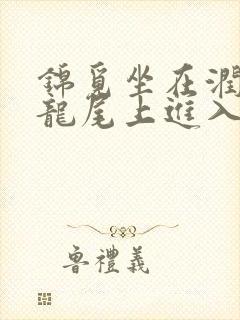 錦覓坐在潤
龍尾上進入
魯禮義